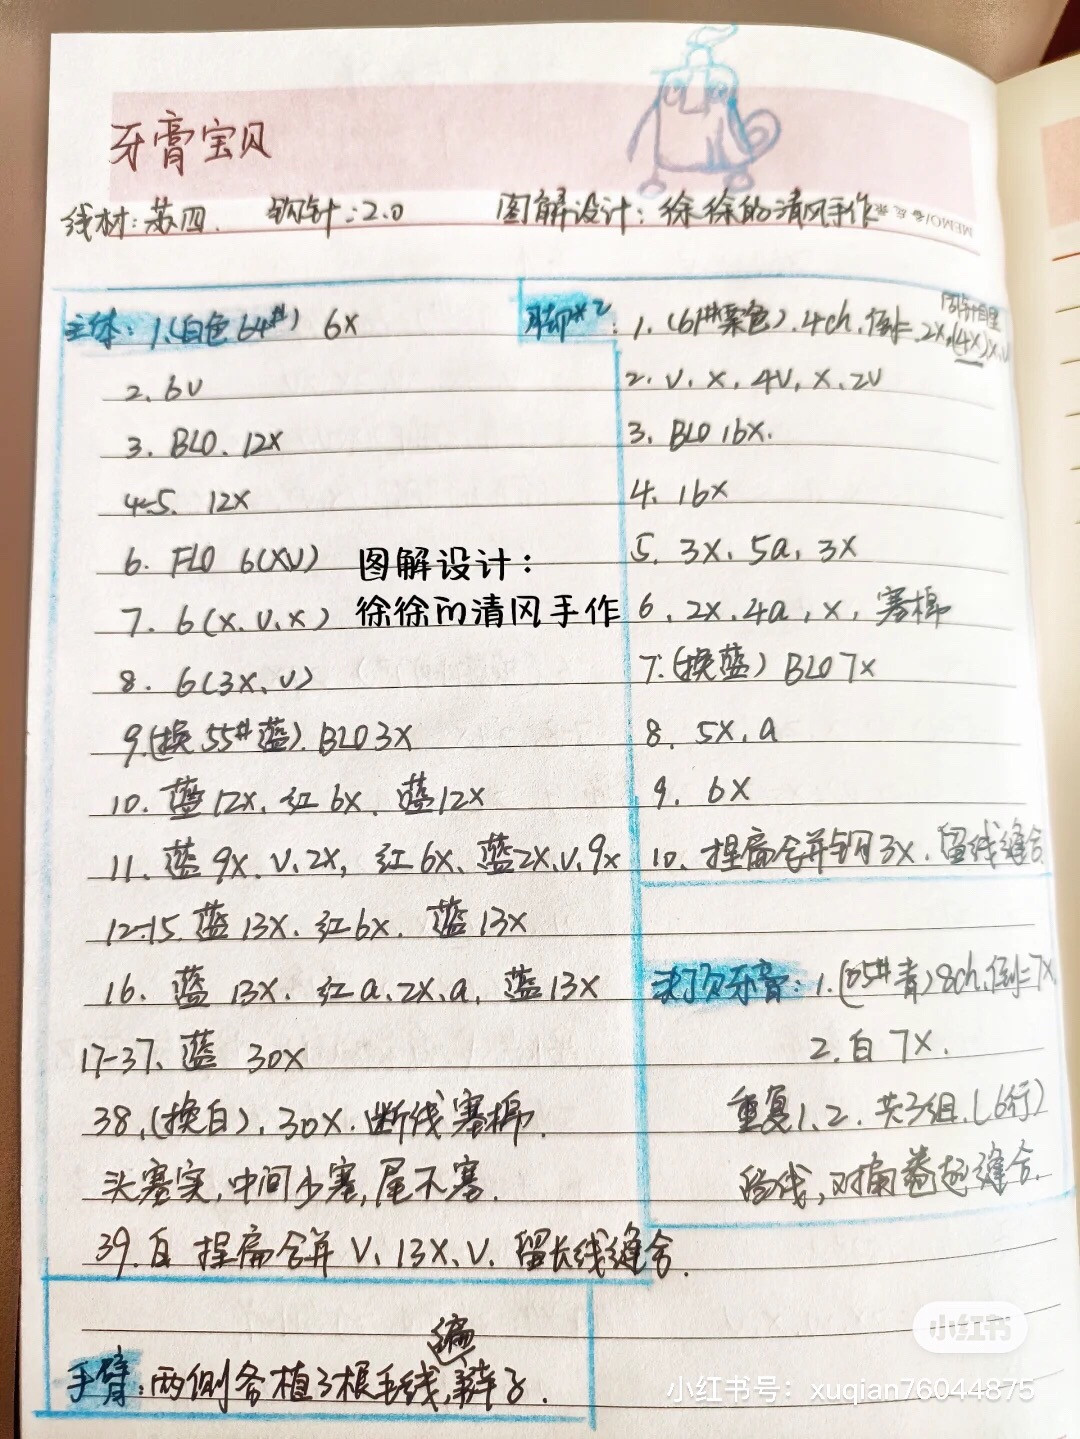 牙膏宝贝
线材:苏四. 钩针:2.0 图解设计:徐徐的清风手作
MEMO/备忘录
主体:1.(白色64#) 6X
2、6V
3. BLO. 12X
4-5. 12X
6. FLO 6(XV)
7. 6(X.V.X)
8. 6(3X、V)
9.(换55#蓝). BLO 3X
10. 蓝12X. 红6X. 蓝12X
11. 蓝9X. V. 2X, 红6X、蓝2X.V.9X
12-15. 蓝13X. 红6X. 蓝13X
16. 蓝13X. 红a.2X.a, 蓝13X
17-37. 蓝 30X
38.(换白). 30X. 断线塞棉.
头塞实,中间少塞,尾不塞.
39. 白 捏扁合并 V、13X、V. 留长线缝合.
图解设计:
徐徐的清风手作
脚*2: 1.(61#栗色).4ch.倒二2X.(4X)X.V
同针目里
2. V. X. 4V, X. 2V
3. BLO 16X.
4. 16X
5. 3X. 5a. 3X
6. 2X. 4a, X, 塞棉
7.(换蓝) BLO 7X
8. 5X. a
9. 6X
10. 捏扁合并钩3X. 留线缝合
头顶牙膏: 1.(05#青)8ch.倒二7X
2. 白 7X.
重复1、2. 共3组.(6行)
留线,对角卷起缝合.
手臂:两侧各植3根毛线,编辫子.
小红书
小红书号:xuqian76044875